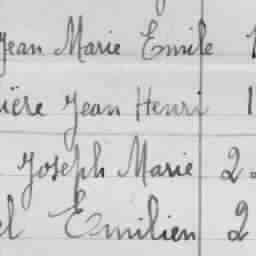 Jean Marie Emile 1
ière Jean Henri 1
Joseph Marie 2
el Emilien 2